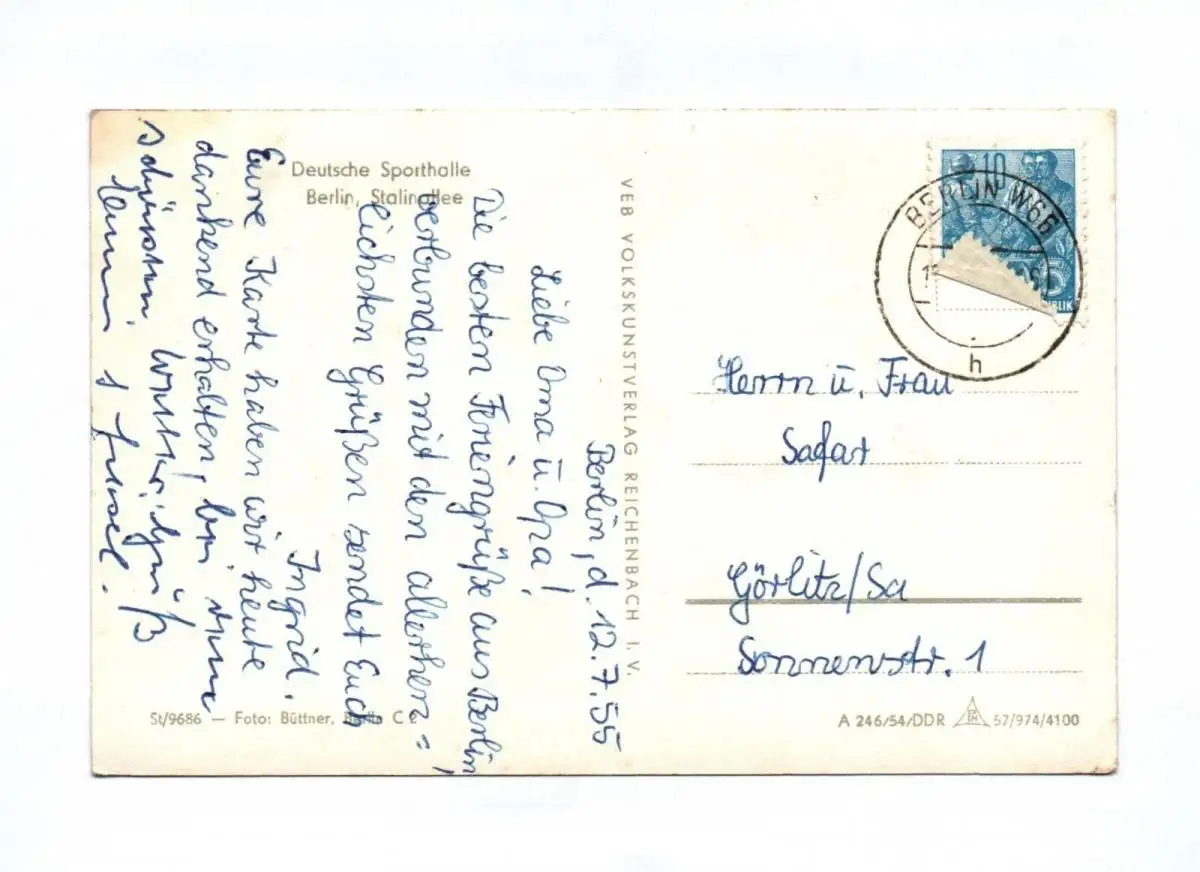 Deutsche Sporthalle
Berlin, Stalinallee
Berlin, d. 12.7.55
Liebe Oma u. Opa!
Die besten Feriengrüße aus Berlin,
verbunden mit den allerherz=
lichsten Grüßen sendet Euch
Ingrid.
Eure Karte haben wir heute
dankend erhalten,
schönsten
St/9686 — Foto: Büttner, Berlin C 2
VEB VOLKSKUNSTVERLAG REICHENBACH I. V.
10
BERLIN W66
h
Herrn u. Frau
Safar
Görlitz/Sa
Sonnenstr. 1
A 246/54/DDR
57/974/4100